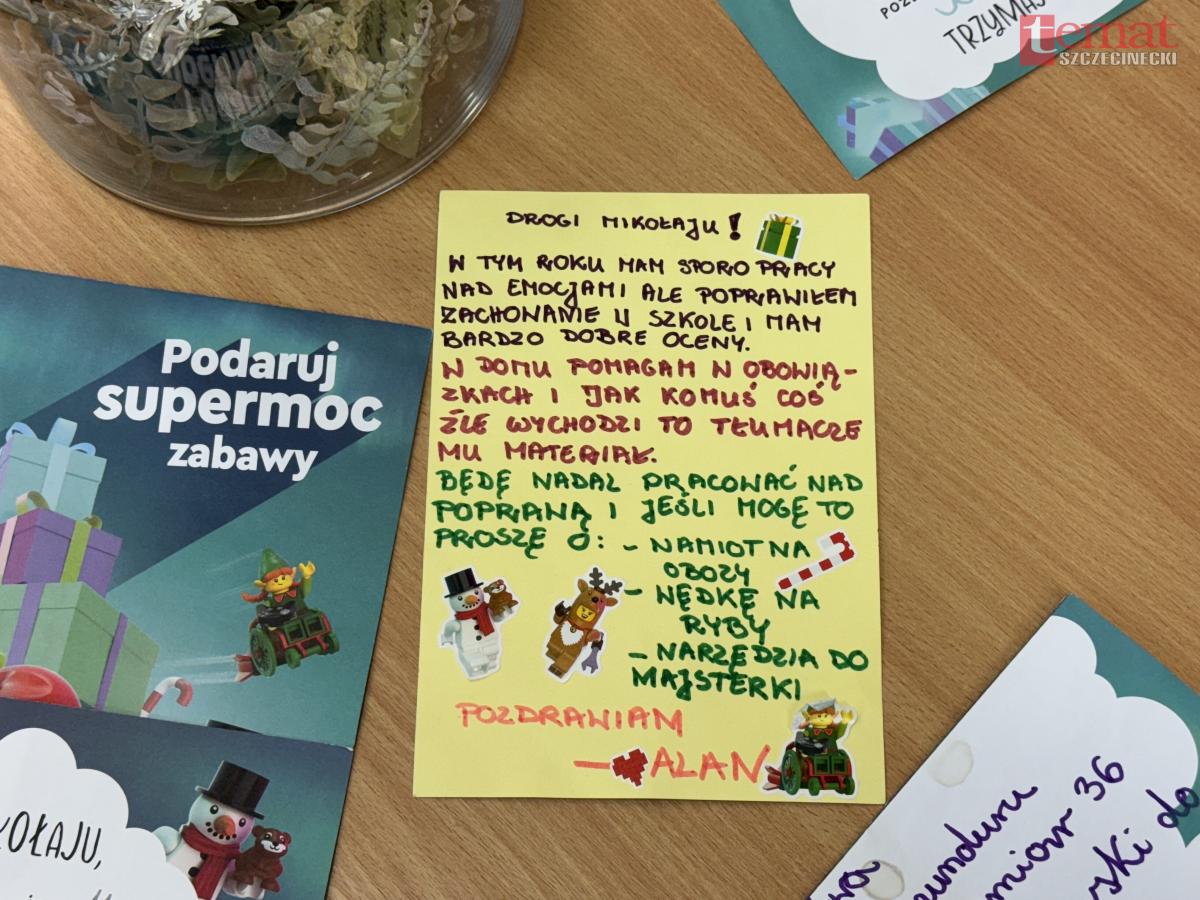 POZ
TRZYMAJ
temat
SZCZECINECKI
DROGI MIKOŁAJU!
W TYM ROKU MAM SPORO PRACY
NAD EMOCJAMI ALE POPRAWIŁEM
ZACHOWANIE W SZKOLE I MAM
BARDZO DOBRE OCENY.
W DOMU POMAGAM W OBOWIĄ-
ZKACH I JAK KOMUŚ COŚ
ŹLE WYCHODZI TO TŁUMACZE
MU MATERIAŁ.
BĘDĘ NADAL PRACOWAĆ NAD
POPRAWĄ I JEŚLI MOGĘ TO
PROSZĘ O: - NAMIOT NA
OBOZY
- WĘDKĘ NA
RYBY
- NARZĘDZIA DO
MAJSTERKI
POZDRAWIAM
- ALAN
Podaruj
supermoc
zabawy
OŁAJU,
36
do